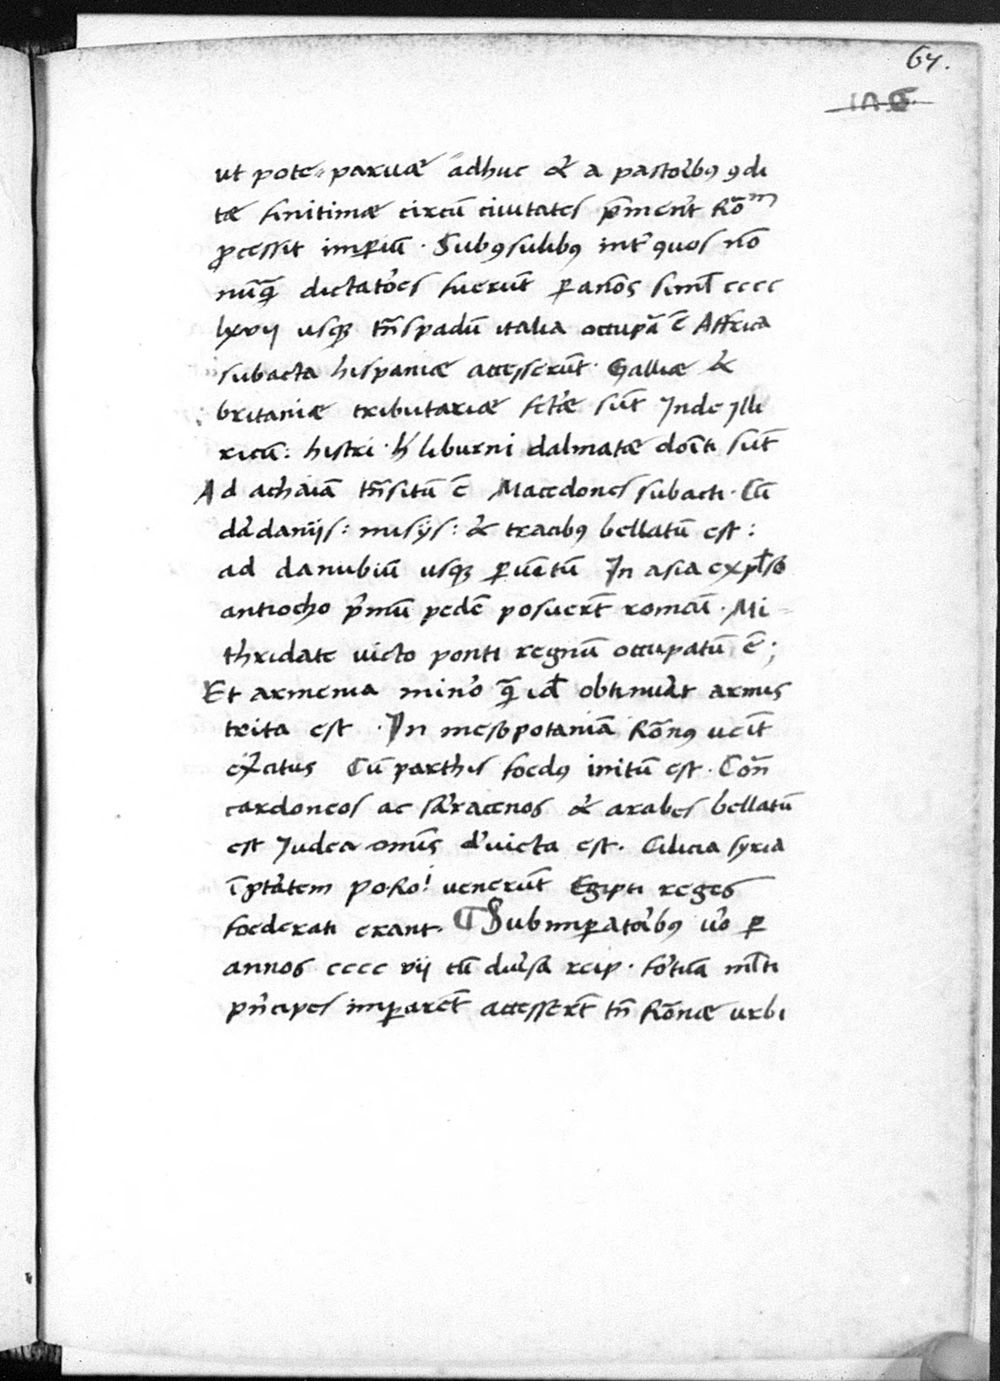 67.
106
ut pote paruæ adhuc & a pastoribꝫ ꝯdi
tæ finitimæ circū ciuitates p̄merēt Rōᵐ
ꝓcessit imꝑiū · Subꝯsulibꝫ int̉ quos nō
nūq̄ dictato᷑es fuerūt ꝑ anōs siml̄ cccc
lxvij usqꝫ tn̄spadū italia occupā ē Affrica
subacta hispaniæ accesserūt · Galliæ &
britaniæ tributariæ fctæ sūt Inde Illi
ricū: histri · liburni dalmatæ doīti sūt
Ad achaiā tn̄sitū ē Macedones subacti · Cū
da᷑danijs: misijs: & tracibꝫ bellatū est:
ad danubiū usqꝫ ꝑuētū In asia expl̄so
antiocho p᷑mū pedē posuer̄t romāi · Mi
thridate uicto ponti regnū occupatū ē;
Et armenia mino᷑ q̄ id̄ obtinu᷑at armis
trita est · In mesopotaniā Rōnꝯ ueīt
ex᷑citus Cū parthis foedꝯ initū est · Con̄
cardoneos ac sa᷑racenos & arabes bellatū
est Judea omīs d᷑uicta est. Cilicia syria
ī ptātem po. Ro! uenerūt Egipti reges
foederati erant. ¶ Sub imꝑato᷑ibꝫ u᷑o ꝑ
annos cccc vij cū diu᷑sa reip · fo᷑tūa ml̄ti
pn̄cipes imꝑarēt accesser̄t tn̄ Rōnæ urbi